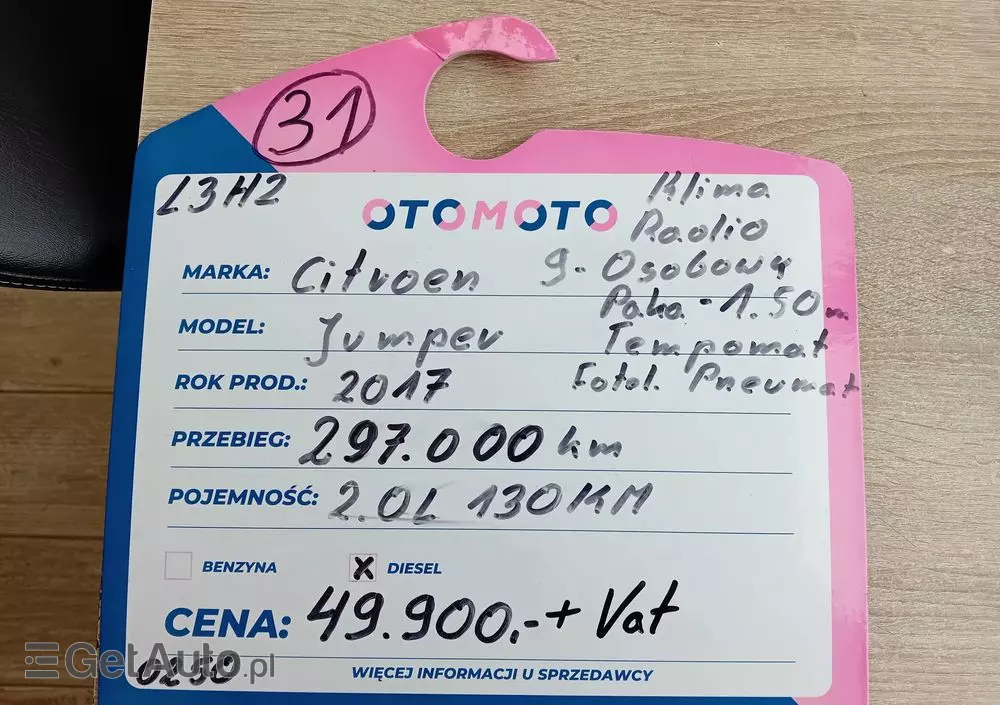 31
L3H2
OTOMOTO
Klima
Radio
9-Osobowy
Paka-1.50m
Tempomat
Fotel. Pneumat
MARKA: Citroen
MODEL: Jumper
ROK PROD.: 2017
PRZEBIEG: 297.000 km
POJEMNOŚĆ: 2.0L 130KM
BENZYNA X DIESEL
CENA: 49.900,-+ Vat
GetAuto.pl
WIĘCEJ INFORMACJI U SPRZEDAWCY